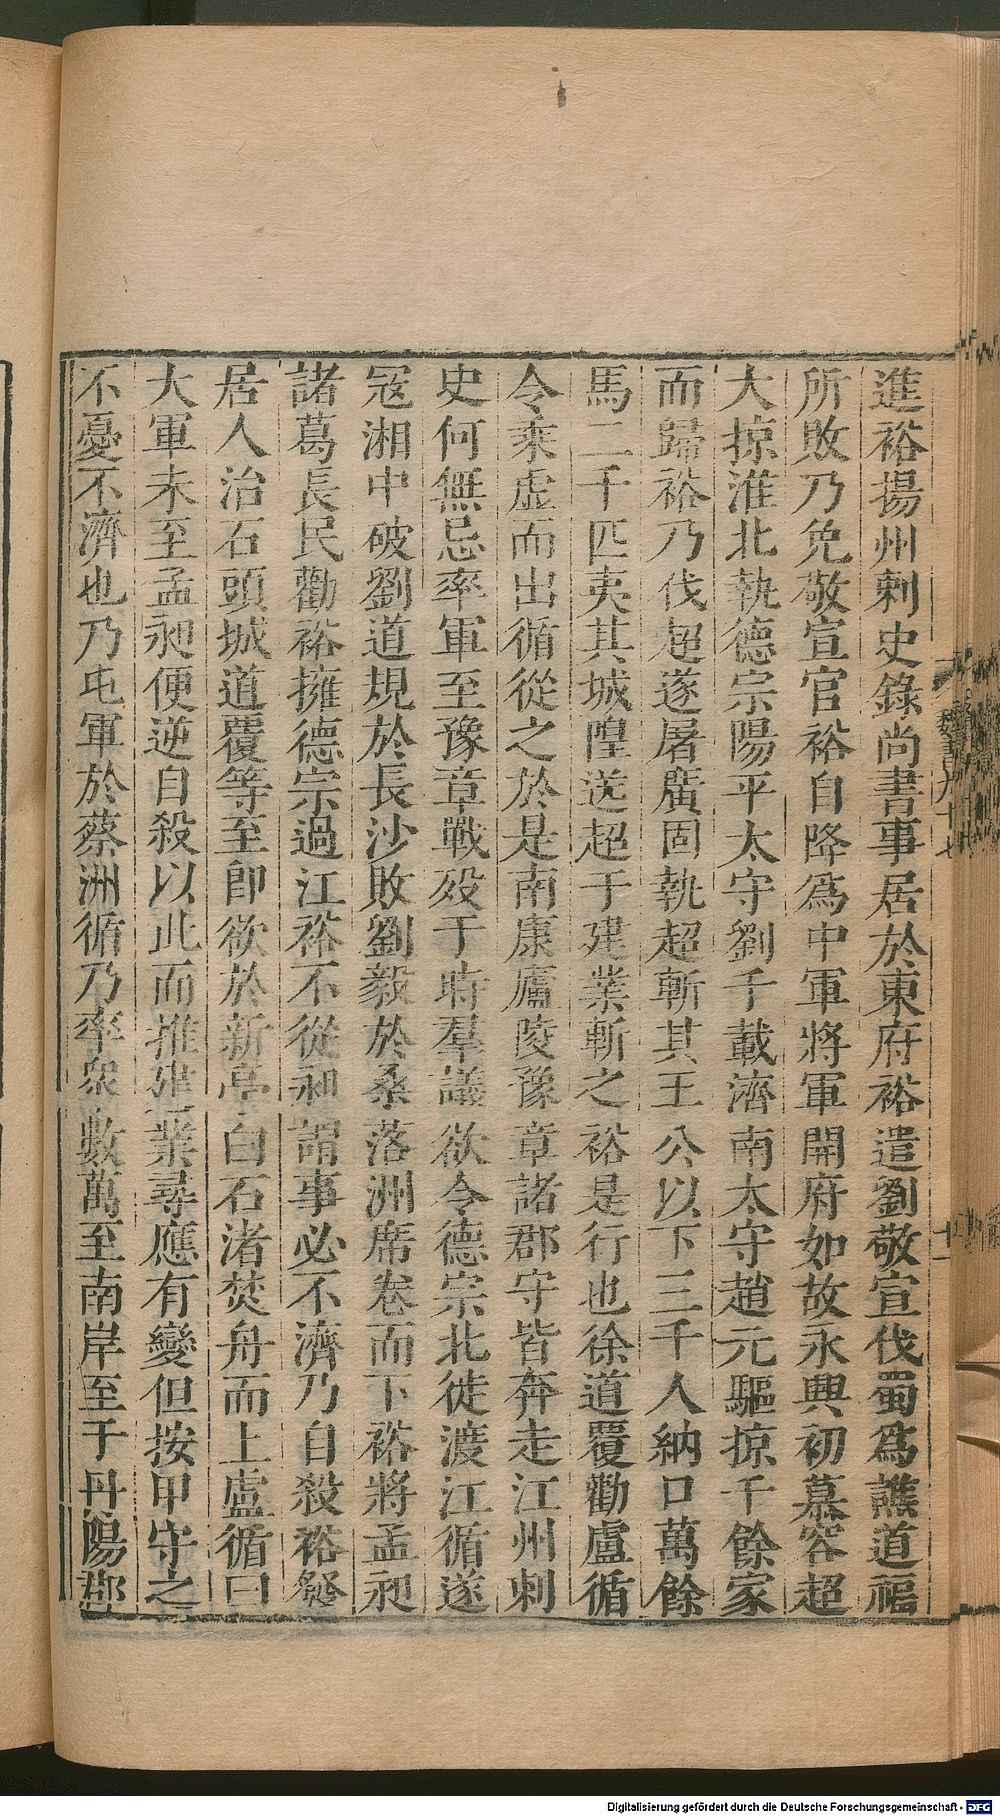 進裕揚州刺史錄尚書事居於東府裕遣劉敬宣伐蜀爲譙道福
所敗乃免敬宣官裕自降爲中軍將軍開府如故永興初慕容超
大掠淮北執德宗陽平太守劉千載濟南太守趙元驅掠千餘家
而歸裕乃伐超遂屠廣固執超斬其王公以下三千人納口萬餘
馬二千匹夷其城隍送超于建業斬之裕是行也徐道覆勸盧循
令乘虛而出循從之於是南康廬陵豫章諸郡守皆奔走江州刺
史何無忌率軍至豫章戰歿于時羣議欲令德宗北徙渡江循遂
寇湘中破劉道規於長沙敗劉毅於桑落洲席卷而下裕將孟昶
諸葛長民勸裕擁德宗過江裕不從昶謂事必不濟乃自殺裕發
居人治石頭城道覆等至卽欲於新亭白石渚焚舟而上盧循曰
大軍未至孟昶便逆自殺以此而推建業尋應有變但按甲守之
不憂不濟也乃屯軍於蔡洲循乃率衆數萬至南岸至于丹陽郡
魏書九十七
十一
Digitalisierung gefördert durch die Deutsche Forschungsgemeinschaft - DFG